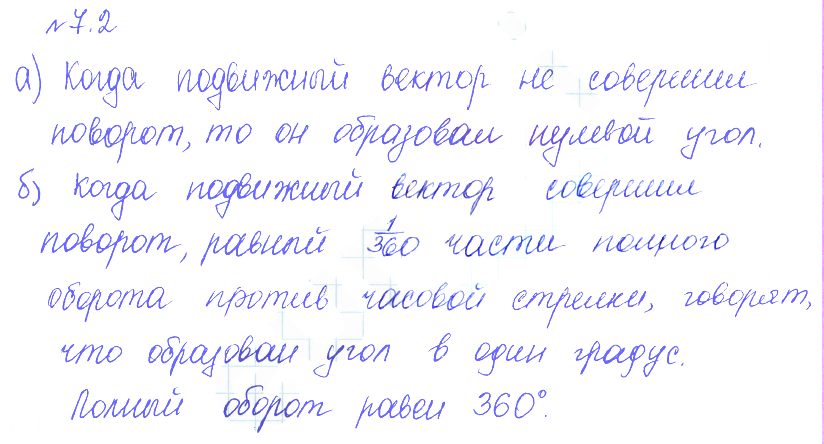 №7.2
а) Когда подвижный вектор не совершил
поворот, то он образовал нулевой угол.
б) Когда подвижный вектор совершил
поворот, равный 1/360 части полного
оборота против часовой стрелки, говорят,
что образован угол в один градус.
Полный оборот равен 360°.